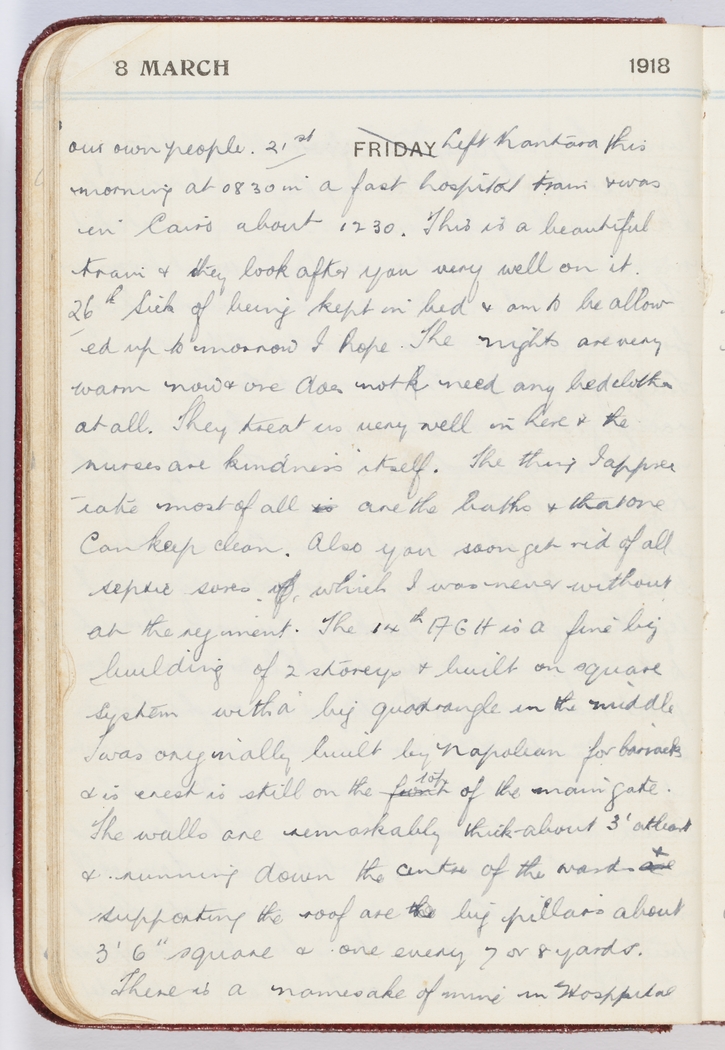 8 MARCH 1918
our own people. 21st FRIDAY Left Kantara this
morning at 0830 in a fast hospital train & was
in Cairo about 1230. This is a beautiful
train & they look after you very well on it.
26th Sick of being kept in bed & am to be allow-
ed up to morrow I hope. The nights are very
warm now & one does not need any bedclothes
at all. They treat us very well in here & the
nurses are kindness itself. The thing I apprec
iate most of all is are the baths & that one
can keep clean. Also you soon get rid of all
septic sores of, which I was never without
at the regiment. The 14th AGH is a fine big
building of 2 storeys & built on square
system with a big quadrangle in the middle
I was originally built by Napolean for barracks
& is crest is still on the front top of the main gate.
The walls are remarkably thick - about 3' at least
& running down the centre of the wards are &
supporting the roof are the big pillars about
3' 6" square & one every 7 or 8 yards.
There is a namesake of mine in Hosppital